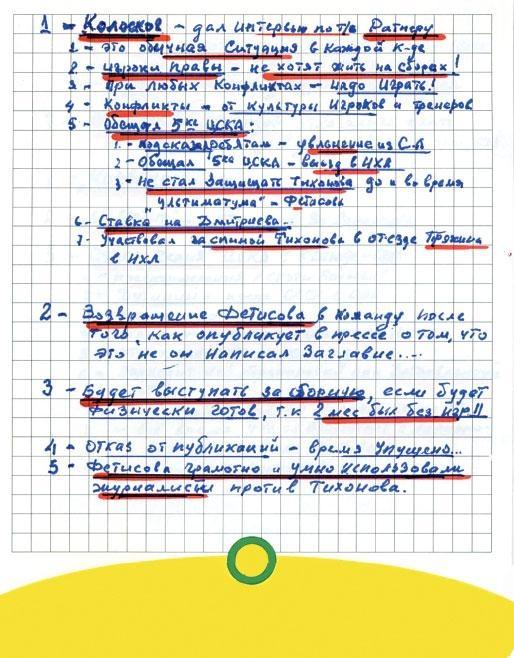 1 - Колосков - дал интервью по т/в Ратнеру
1 - это обычная ситуация в каждой к-де
2 - игроки правы - не хотят жить на сборах!
3 - При любых Конфликтах - надо играть!
4 - Конфликты - от культуры игроков и тренеров
5 - Обещал 5ке ЦСКА:
1 - подсказ. ребятам - увлънение из С.А
2 - Обещал 5ке ЦСКА - выезд в НХЛ
3 - Не стал защищать Тихонова до и во время
"ультиматума" - Фетисова
6 - Ставка на Дмитриева..
7 - Участвовал за спиной Тихонова в отъезде Пряхина
в НХЛ
2 - Возвращение Фетисова в команду после
того, как опубликует в прессе о том, что
это не он написал Заглавие....
3 - Будет выступать за сборную, если будет
физически готов, т.к 2 мес был без игр!!
4 - Отказ от публикаций - время упущено...
5 - Фетисова грамотно и умно использовали
журналисты против Тихонова.